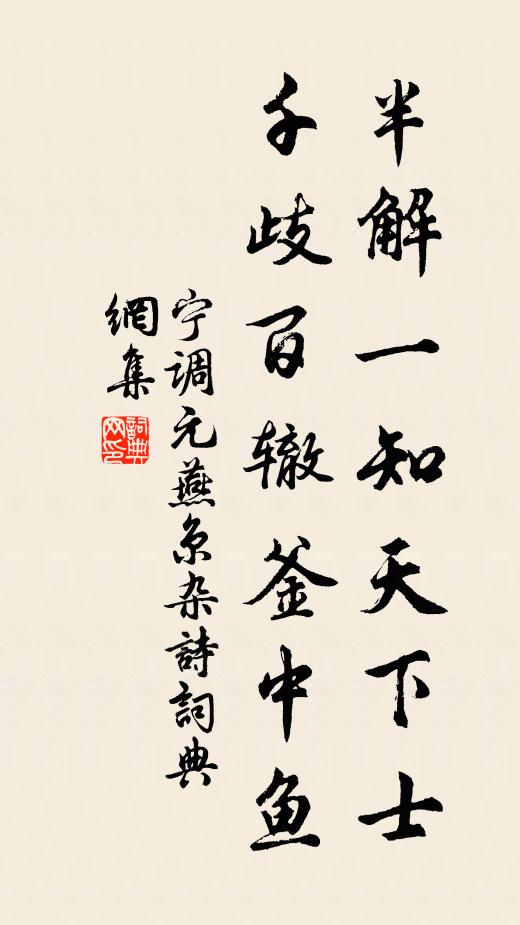 半解一知天下士
千歧百辙釜中鱼
宁调元燕京杂詩詞典
網集
詞典
网印